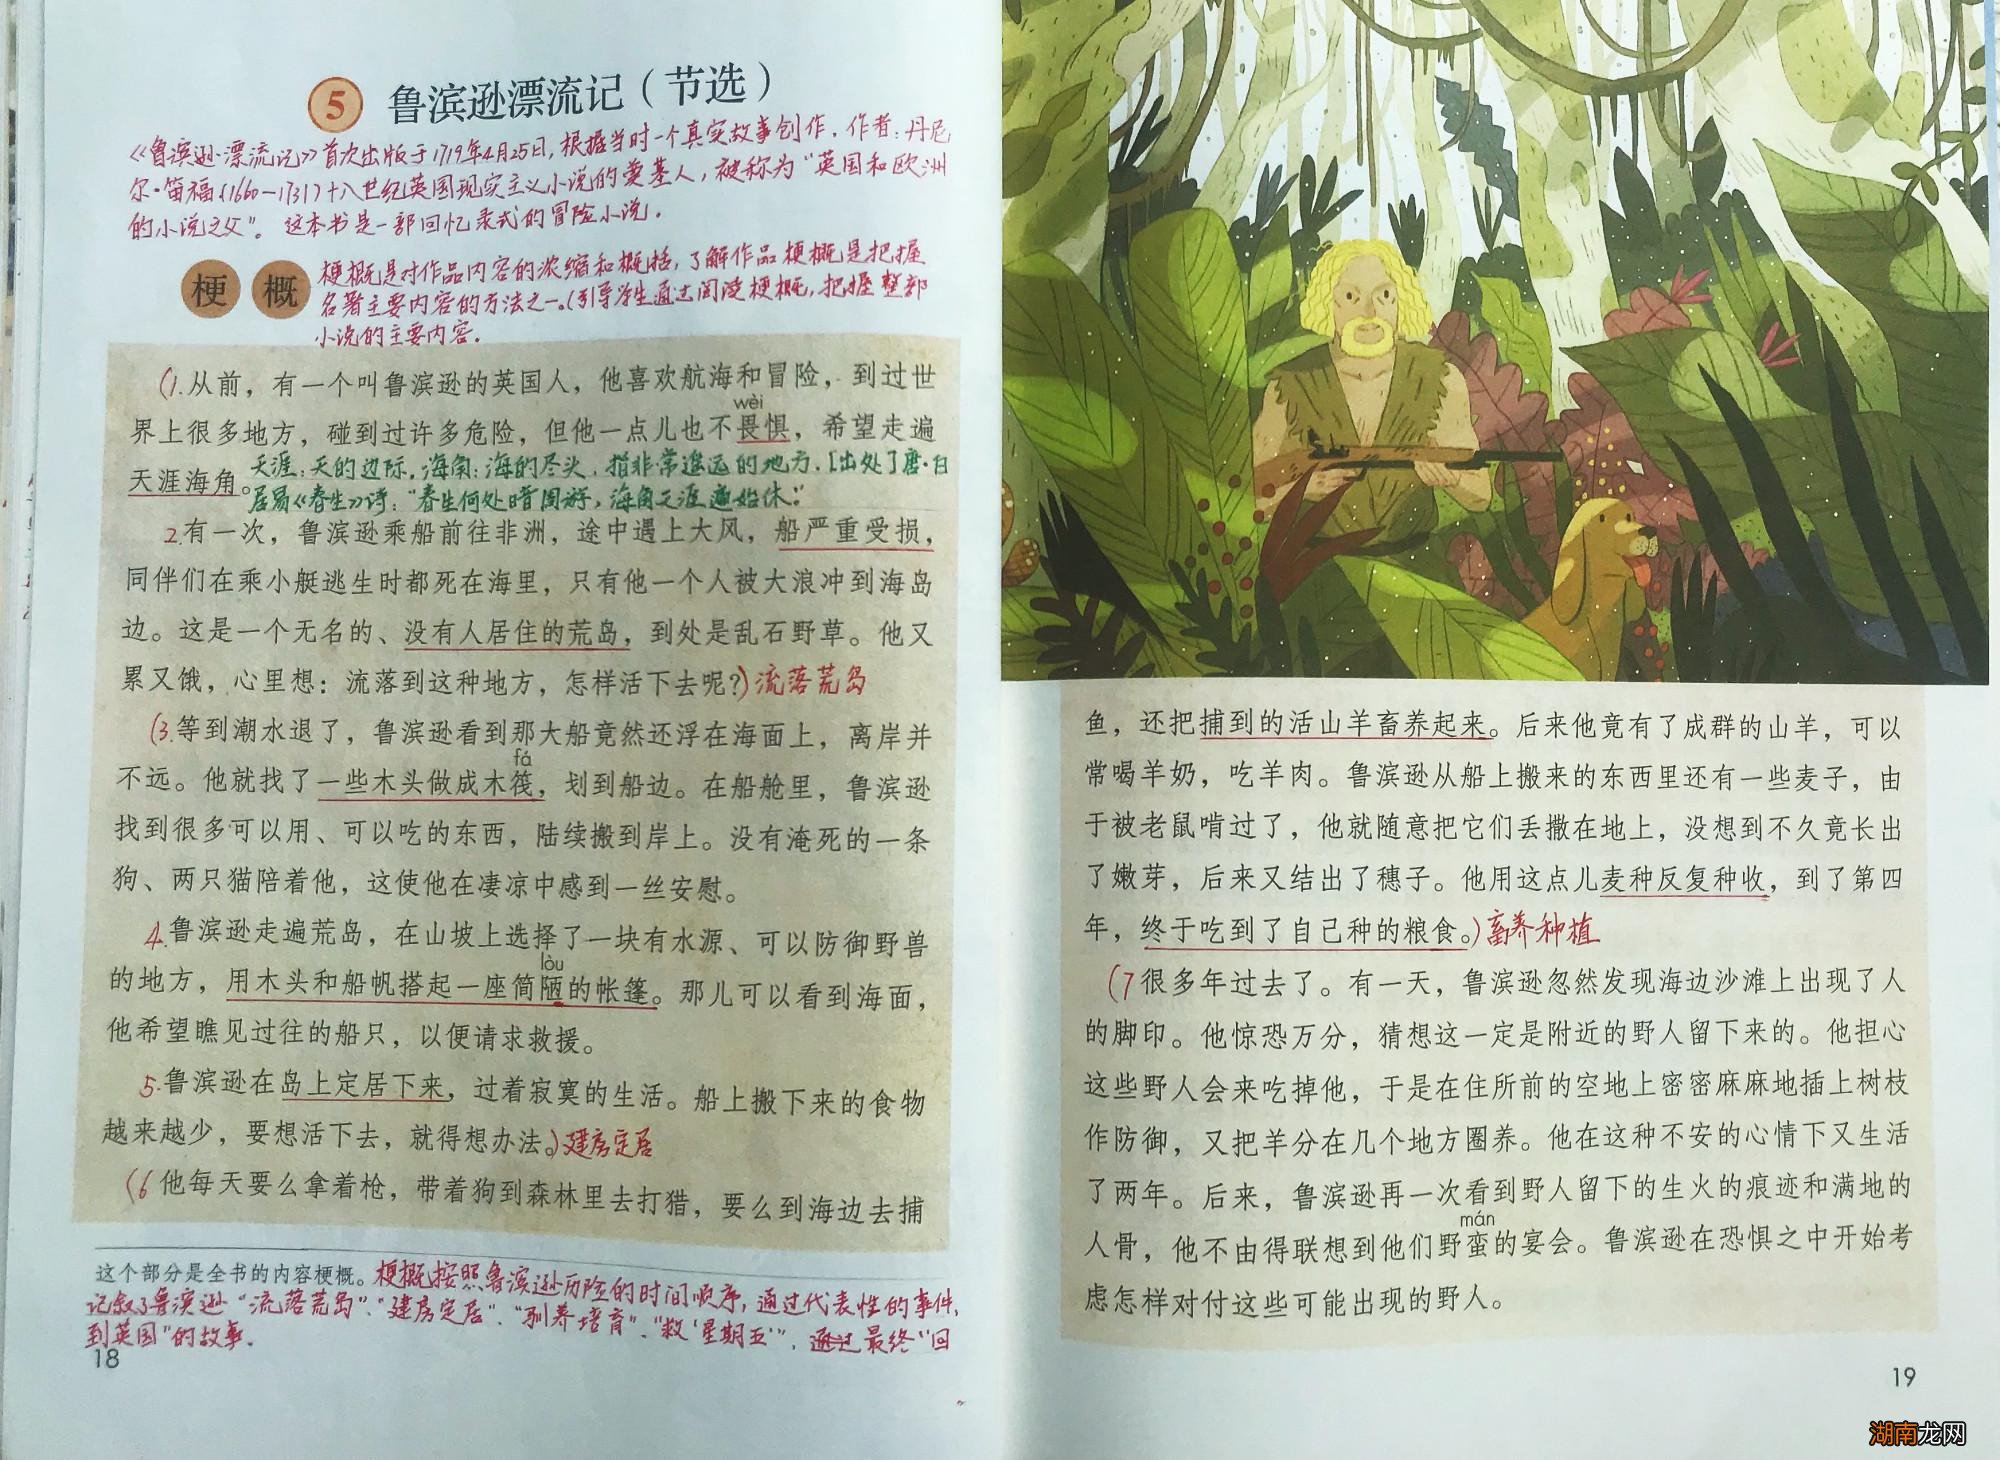 5 鲁滨逊漂流记（节选）
《鲁滨逊漂流记》首次出版于1719年4月25日,根据当时一个真实故事创作.作者:丹尼
尔·笛福(1660—1731)十八世纪英国现实主义小说的奠基人,被称为"英国和欧洲
的小说之父"。这本书是一部回忆录式的冒险小说.
梗概
梗概是对作品内容的浓缩和概括,了解作品梗概是把握
名著主要内容的方法之一。(引导学生通过阅读梗概,把握整部
小说的主要内容.
(1.从前，有一个叫鲁滨逊的英国人，他喜欢航海和冒险，到过世
wèi
界上很多地方，碰到过许多危险，但他一点儿也不畏惧，希望走遍
天涯海角。
天涯:天的边际.海角:海的尽头.指非常遥远的地方.[出处]唐·白
居易《春生》诗:"春生何处暗周游,海角天涯遍始休."
2.有一次，鲁滨逊乘船前往非洲，途中遇上大风，船严重受损，
同伴们在乘小艇逃生时都死在海里，只有他一个人被大浪冲到海岛
边。这是一个无名的、没有人居住的荒岛，到处是乱石野草。他又
累又饿，心里想：流落到这种地方，怎样活下去呢？)流落荒岛
(3.等到潮水退了，鲁滨逊看到那大船竟然还浮在海面上，离岸并
fá
不远。他就找了一些木头做成木筏，划到船边。在船舱里，鲁滨逊
找到很多可以用、可以吃的东西，陆续搬到岸上。没有淹死的一条
狗、两只猫陪着他，这使他在凄凉中感到一丝安慰。
4.鲁滨逊走遍荒岛，在山坡上选择了一块有水源、可以防御野兽
lòu
的地方，用木头和船帆搭起一座简陋的帐篷。那儿可以看到海面，
他希望瞧见过往的船只，以便请求救援。
5.鲁滨逊在岛上定居下来，过着寂寞的生活。船上搬下来的食物
越来越少，要想活下去，就得想办法。)建房定居
(6他每天要么拿着枪，带着狗到森林里去打猎，要么到海边去捕
这个部分是全书的内容梗概。梗概按照鲁滨逊历险的时间顺序,通过代表性的事件,
记叙了鲁滨逊"流落荒岛"、"建房定居"、"驯养培育"、"救'星期五'"、通过最终"回
到英国"的故事.
18
鱼，还把捕到的活山羊畜养起来。后来他竟有了成群的山羊，可以
常喝羊奶，吃羊肉。鲁滨逊从船上搬来的东西里还有一些麦子，由
于被老鼠啃过了，他就随意把它们丢撒在地上，没想到不久竟长出
了嫩芽，后来又结出了穗子。他用这点儿麦种反复种收，到了第四
年，终于吃到了自己种的粮食。)畜养种植
(7很多年过去了。有一天，鲁滨逊忽然发现海边沙滩上出现了人
的脚印。他惊恐万分，猜想这一定是附近的野人留下来的。他担心
这些野人会来吃掉他，于是在住所前的空地上密密麻麻地插上树枝
作防御，又把羊分在几个地方圈养。他在这种不安的心情下又生活
了两年。后来，鲁滨逊再一次看到野人留下的生火的痕迹和满地的
mán
人骨，他不由得联想到他们野蛮的宴会。鲁滨逊在恐惧之中开始考
虑怎样对付这些可能出现的野人。
19
湖南龙网